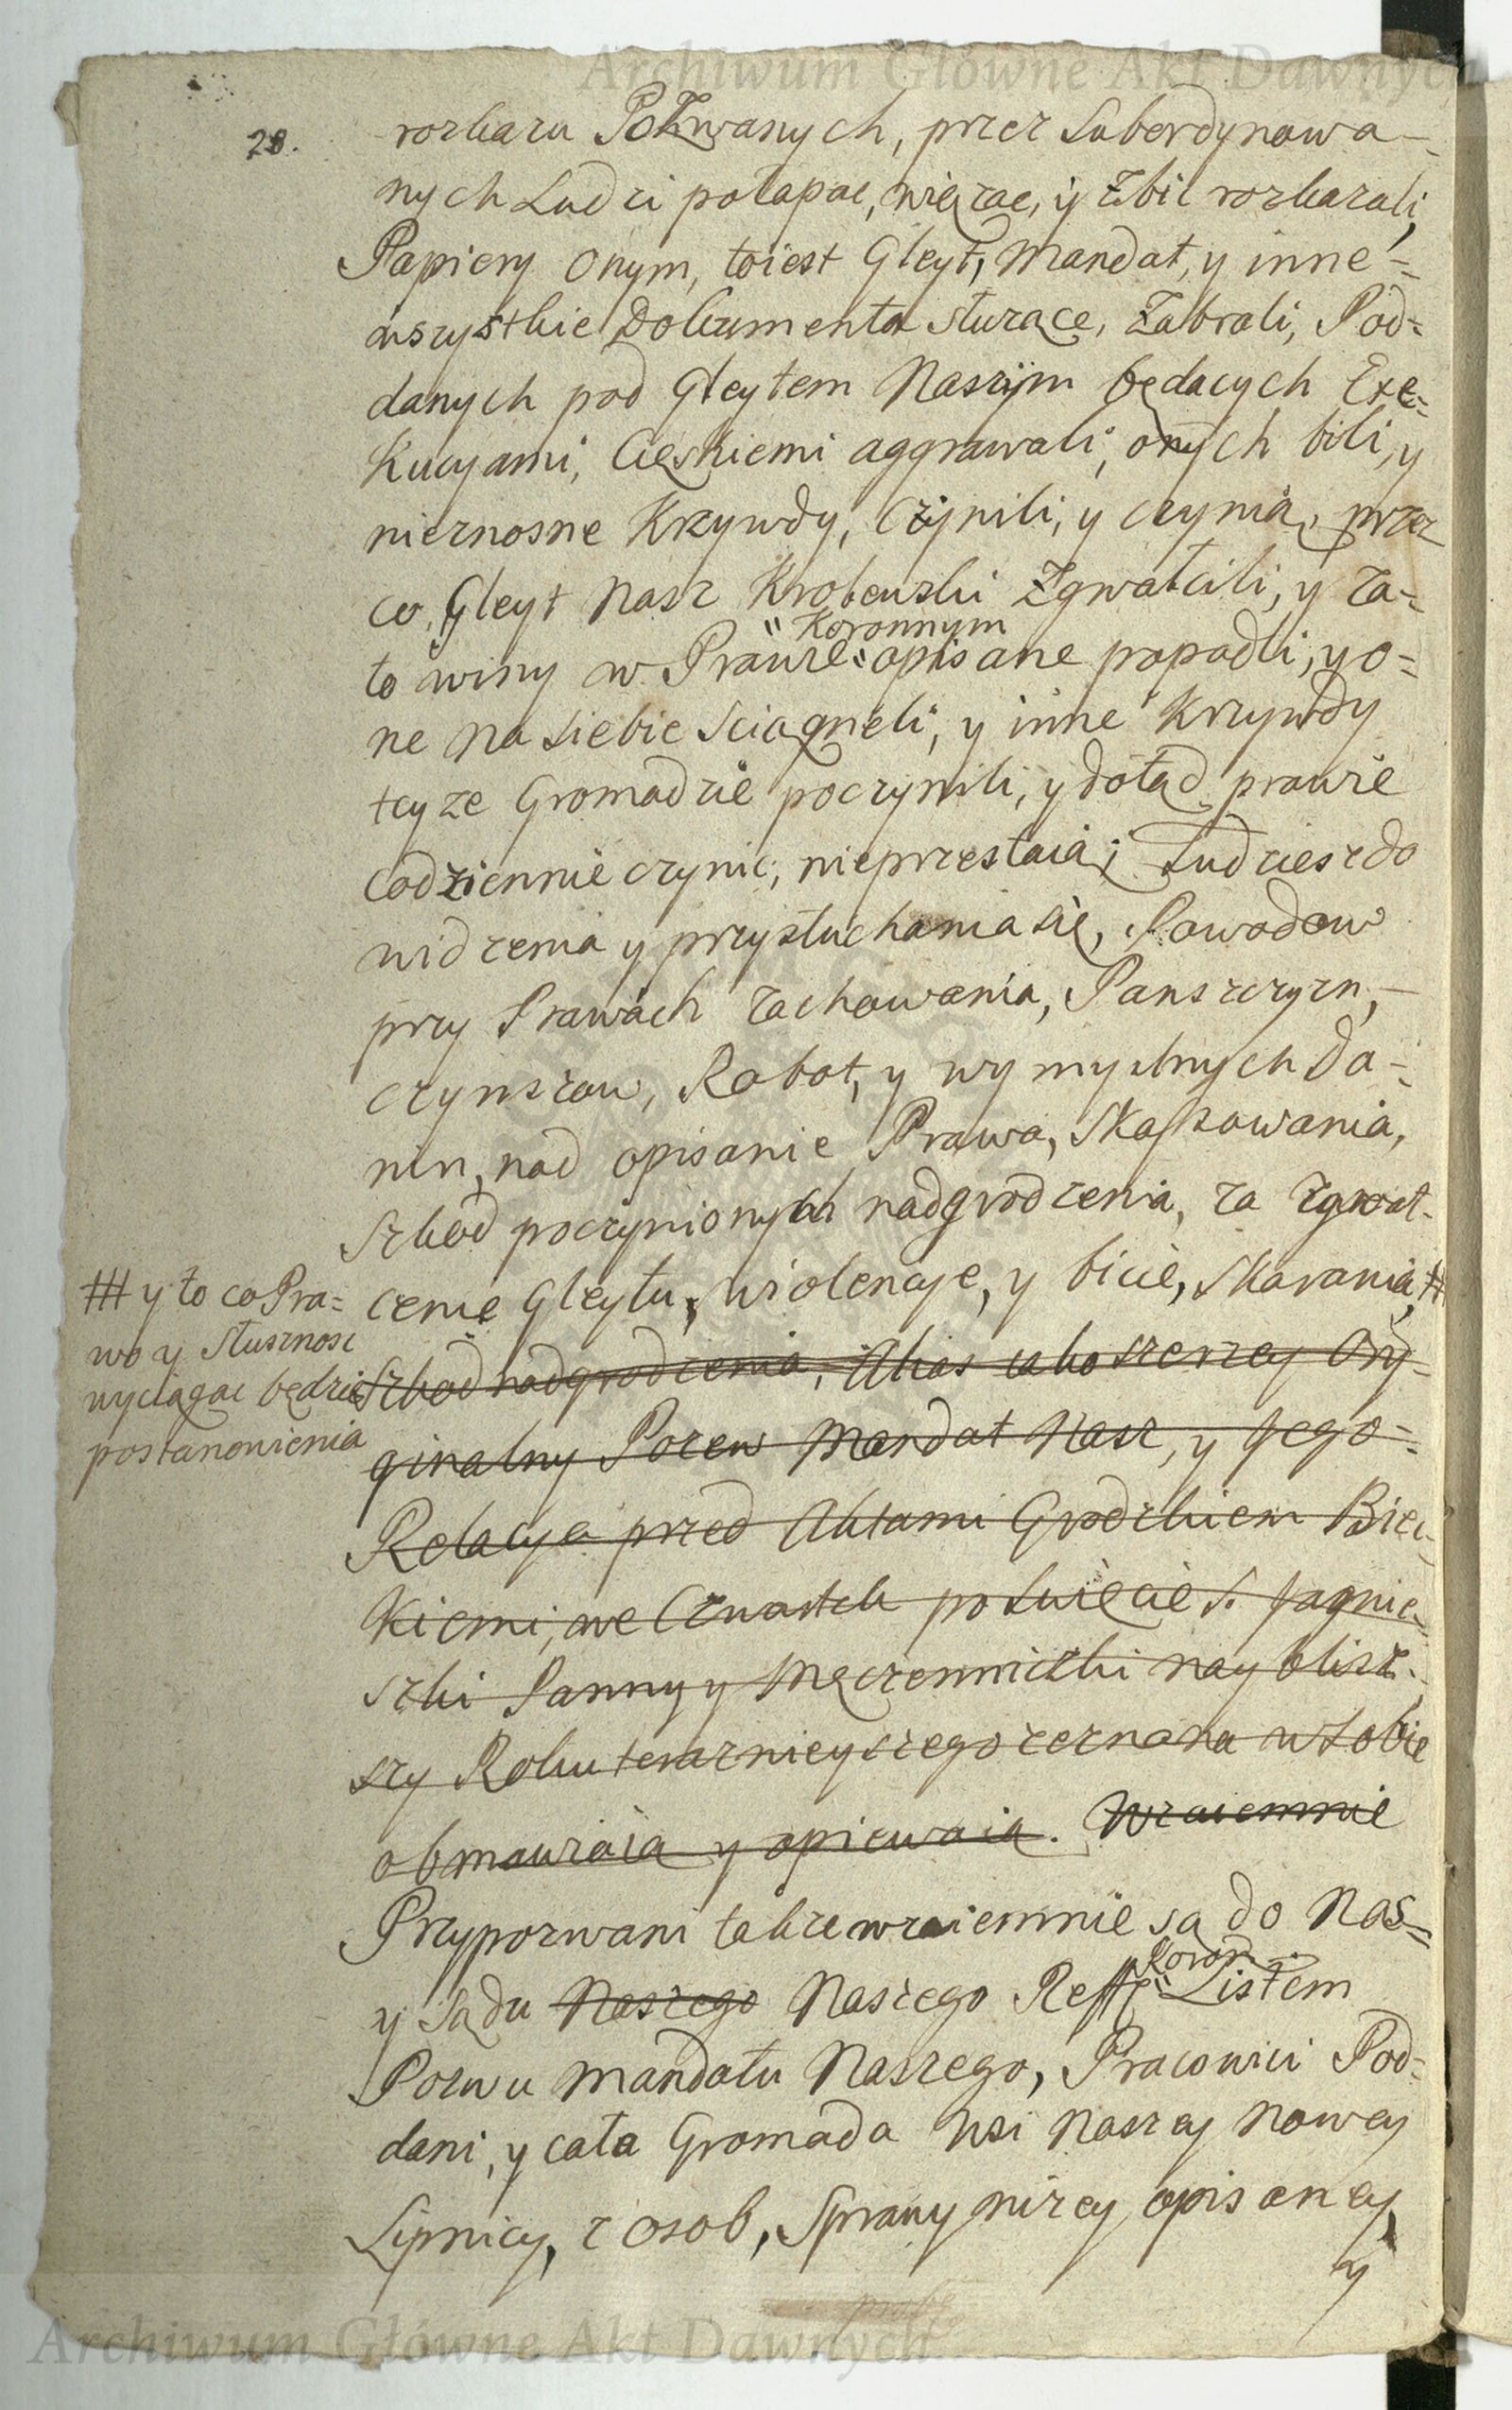 Archiwum Główne Akt Dawnych
28.
rozkazu Pozwanych, przez Subordynowa-
nych Ludzi połapac, więzac, y zbic rozkazali,
Papiery onym, toiest Gleyt, Mandat, y inne=
wszystkie Dokumenta służace, Zabrali, Pod=
danych pod Gleytem Naszym będacych Exe=
kucyami, Cięszkiemi aggrawali, onych bili, y
nieznosne Krzywdy, Czynili, y czynią, przez
co, Gleyt Nasz Krolewski Zgwałcili, y za=
Koronnym
to winy w Prawie opisane popadli, y o=
ne na siebie sciagneli, y inne Krzywdy
teyze Gromadzie poczynili, y dotąd prawie
codziennie czynic, nieprzestaią; Tudziesz do
widzenia y przysłuchania się, Powodow
przy Prawach zachowania, Panszczyzn,-
czynszow, Robot, y wymyslnych Da=
nin, nad opisanie Prawa, Skassowania,
Szkod poczynionych nadgrodzenia, za zgwał-
cenie Gleytu, wiolencye, y bicie, Skarania, #
# y to co Pra=
wo y Słusznosc
wyciągac będzie
postanowienia
Szkod nadgrodzenia, Alias iako szerzey Ory-
ginalny Pozew Mandat Nasz, y Jego=
Relacya przed Aktami Grodzkiem Biec-
kiemi, we Czwartek po Swięcie S. Jagnie-
szki Panny y Męczenniczki nayblisz-
szy Roku teraznieyszego zeznana w sobie
obmawiaią y opiewaią. Wzaiemnie
Przypozwani takze wzaiemnie są do Nas=
Koron
y Sądu Naszego Naszego Reff: Listem
Pozwu Mandatu Naszego, Pracowici Pod=
dani, y cała Gromada Wsi Naszey Nowey
Lipnicy, z osob, Sprawy nizey opisaney,
y
Archiwum Główne Akt Dawnych